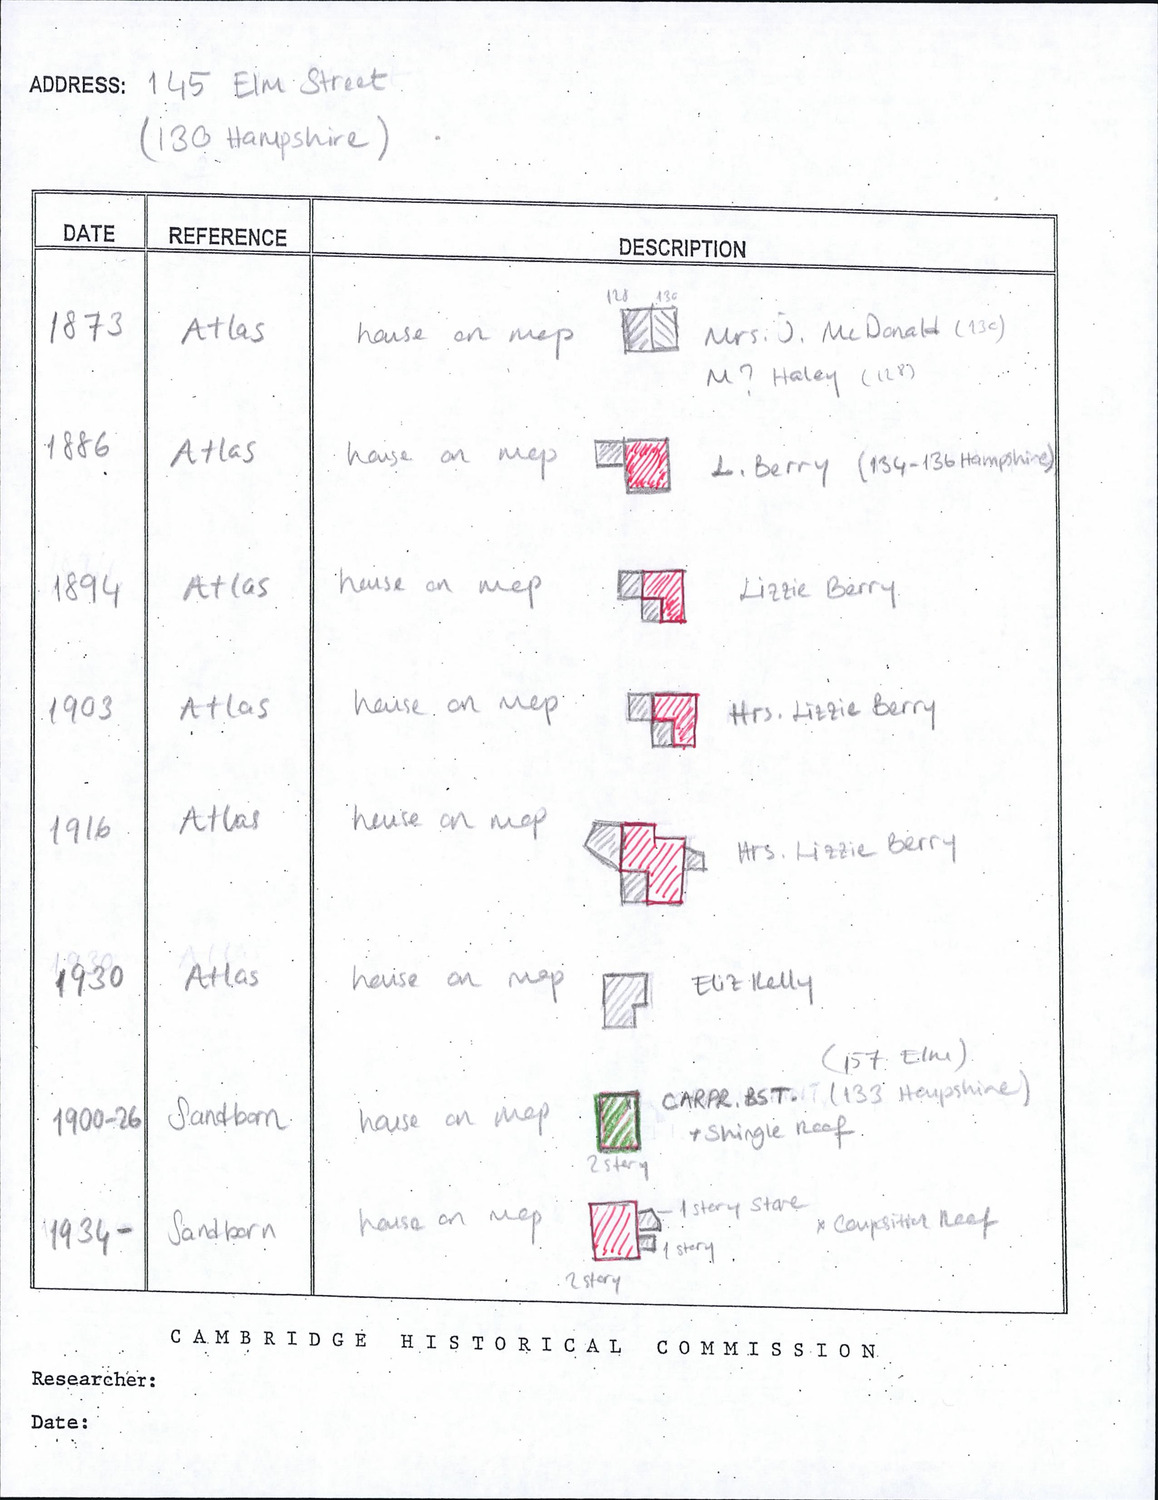 ADDRESS: 145 Elm Street
(130 Hampshire)
DATE REFERENCE DESCRIPTION
128 130
1873 Atlas house on map Mrs. J. McDonald (130)
M? Haley (128)
1886 Atlas house on map L. Berry (134-136 Hampshire)
1894 Atlas house on map Lizzie Berry
1903 Atlas house on map Mrs. Lizzie Berry
1916 Atlas house on map Mrs. Lizzie Berry
1930 Atlas house on map Eliz Kelly
(157 Elm)
1900-26 Sandborn house on map CARPR. BST. (133 Hampshire)
+ Shingle Roof
2 story
1934- Sandborn house on map 1 story Store x Compsition Roof
1 story
2 story
CAMBRIDGE HISTORICAL COMMISSION
Researcher:
Date: